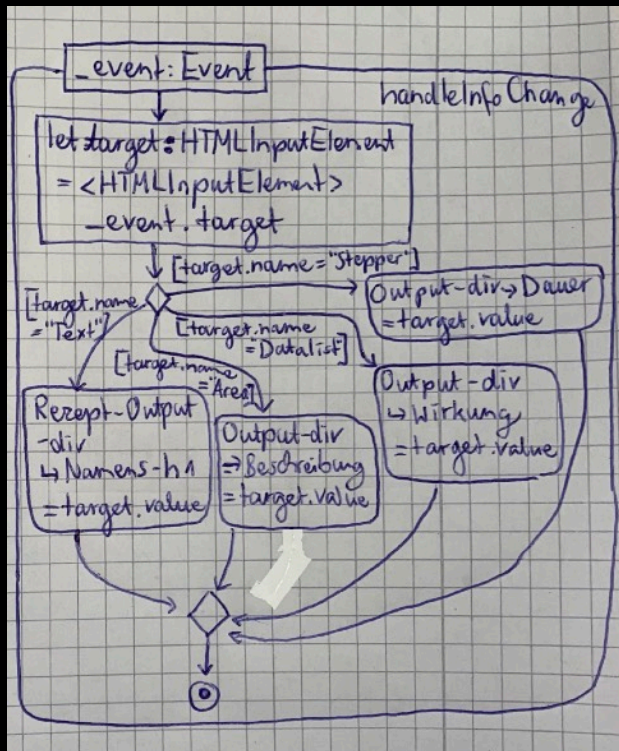 _event: Event
handleInfoChange
let target: HTMLInputElement
= <HTMLInputElement>
_event.target
[target.name="Stepper"]
[target.name
="Text"]
[target.name
=Datalist]
[target.name
=Area]
Output-div→Dauer
=target.value
Output-div
↳Wirkung
=target.value
Rezept-Output
-div
↳Namens-h1
=target.value
Output-div
→Beschreibung
=target.value